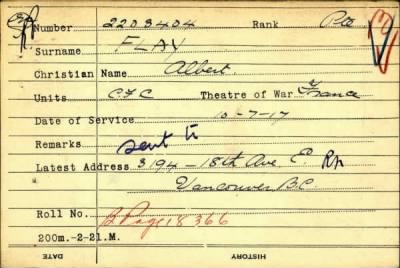 Number 2203404 Rank Pte
Surname FLAY
Christian Name Albert.
Units CFC Theatre of War France
Date of Service 10-7-17
Remarks sent to
Latest Address 3194-18th Ave E. Rn
Vancouver B.C.
Roll No. B Page 18366
200m.-2-21.M. HISTORY